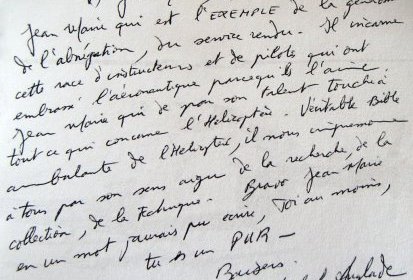 Jean Marie qui est l'EXEMPLE de la
de l'abnégation, du service rendu. Il incarne
cette race d'instructeurs et de pilotes qui ont
embrassé l'aéronautique parcequ'ils l'aiment
Jean Marie qui de par son talent touche à
tout ce qui concerne l'Hélicoptère. Véritable Bible
ambulante de l'Hélicoptère, il nous
à tous par son sens aigu de la recherche, de la
collection, de la technique. Bravo Jean Marie
en un mot j'aurais pu écrire, Toi au moins,
tu es un PUR –